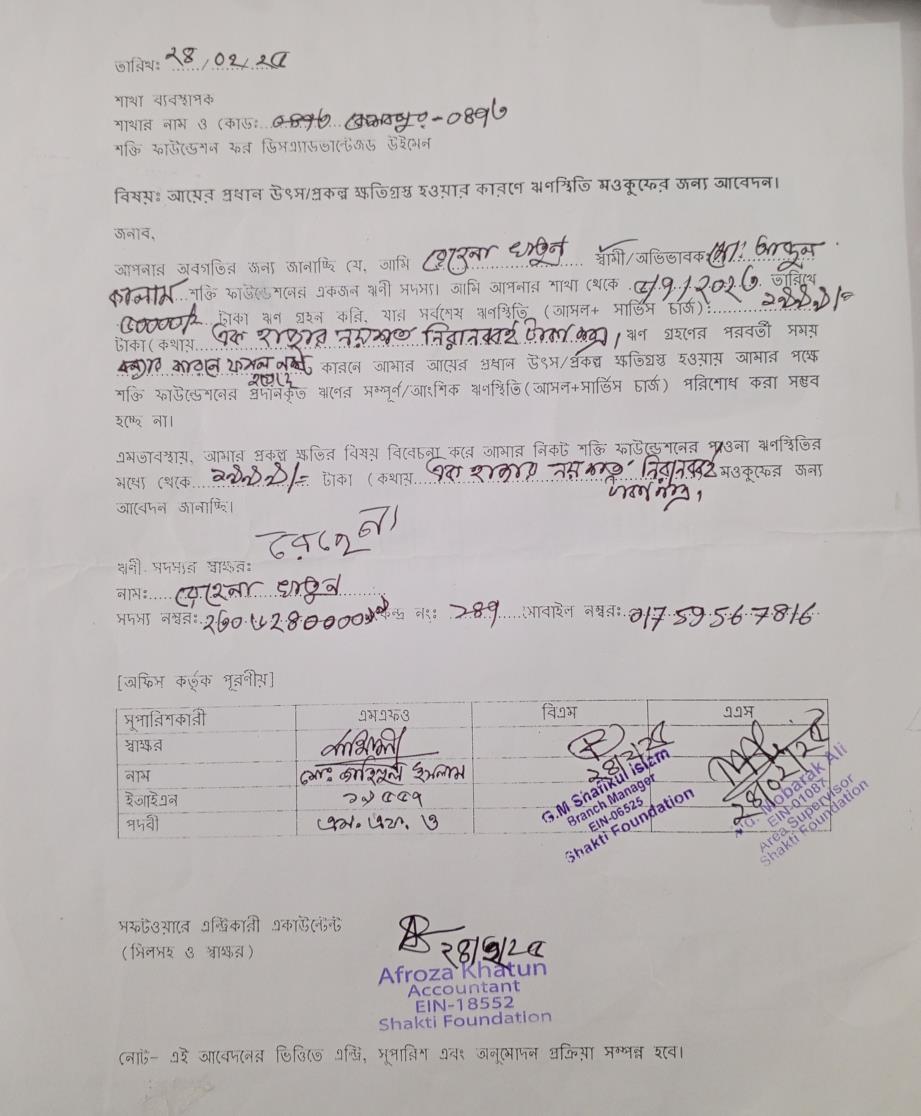 তারিখঃ ২৪/০২/২৫
শাখা ব্যবস্থাপক
শাখার নাম ও কোডঃ -০৪৯৬
শক্তি ফাউন্ডেশন ফর ডিসএ্যাডভান্টেজড উইমেন
বিষয়ঃ আয়ের প্রধান উৎস/প্রকল্প ক্ষতিগ্রস্ত হওয়ার কারণে ঋণস্থিতি মওকুফের জন্য আবেদন।
জনাব,
আপনার অবগতির জন্য জানাচ্ছি যে, আমি রেহেনা খাতুন স্বামী/অভিভাবক মো: আবুল
কালাম শক্তি ফাউন্ডেশনের একজন ঋণী সদস্য। আমি আপনার শাখা থেকে তারিখে
৫০০০০/= টাকা ঋণ গ্রহন করি, যার সর্বশেষ ঋণস্থিতি (আসল+ সার্ভিস চার্জ): ১৯৯৯/=
টাকা (কথায় এক হাজার নয়শত নিরানব্বই টাকা মাত্র, ঋণ গ্রহণের পরবর্তী সময়
বন্যার কারনে ফসল নষ্ট হওয়ায় কারনে আমার আয়ের প্রধান উৎস/প্রকল্প ক্ষতিগ্রস্ত হওয়ায় আমার পক্ষে
শক্তি ফাউন্ডেশনের প্রদানকৃত ঋণের সম্পূর্ণ/আংশিক ঋণস্থিতি (আসল+সার্ভিস চার্জ) পরিশোধ করা সম্ভব
হচ্ছে না।
এমতাবস্থায়, আমার প্রকল্প ক্ষতির বিষয় বিবেচনা করে আমার নিকট শক্তি ফাউন্ডেশনের পাওনা ঋণস্থিতির
মধ্যে থেকে ১৯৯৯/= টাকা (কথায় এক হাজার নয়শত নিরানব্বই মওকুফের জন্য
টাকা মাত্র,
আবেদন জানাচ্ছি।
ঋণী সদস্যর স্বাক্ষরঃ রেহেনা
নামঃ রেহেনা খাতুন
সদস্য নম্বরঃ কেন্দ্র নংঃ ২৪৭ মোবাইল নম্বরঃ 01759567816
[অফিস কর্তৃক পূরণীয়]
সুপারিশকারী এমএফও বিএম এএস
স্বাক্ষর ২৪/২/২৫ ২৪/০২/২৫
নাম মোঃ ইসলাম
ইআইএন ১৯৫৫৭
পদবী এম. এফ. ও
G.M Shafikul Islam
Branch Manager
EIN-06525
Shakti Foundation
Md. Mobarak Ali
Area Supervisor
Shakti Foundation
সফটওয়ারে এন্ট্রিকারী একাউন্টেন্ট
(সিলসহ ও স্বাক্ষর)
২৪/২/২৫
Afroza Khatun
Accountant
EIN-18552
Shakti Foundation
নোট- এই আবেদনের ভিত্তিতে এন্ট্রি, সুপারিশ এবং অনুমোদন প্রক্রিয়া সম্পন্ন হবে।